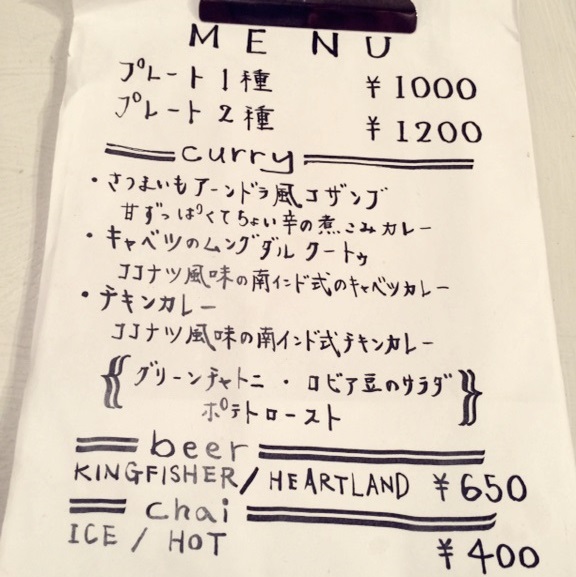 MENU
プレート1種 ¥1000
プレート2種 ¥1200
curry
・さつまいもアーンドラ風コザンブ
甘ずっぱくてちょい辛の煮こみカレー
・キャベツのムングダルクートゥ
ココナツ風味の南インド式のキャベツカレー
・チキンカレー
ココナツ風味の南インド式チキンカレー
グリーンチャトニ・ロビア豆のサラダ
ポテトロースト
beer
KINGFISHER/HEARTLAND ¥650
chai
ICE / HOT ¥400